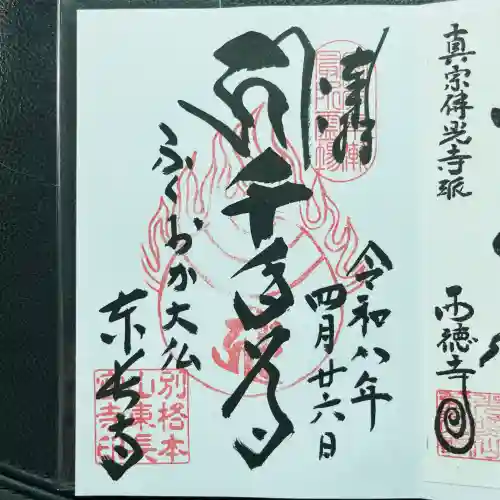 真宗佛光寺派
西徳寺
令和八年
四月廿六日
千手尊
ふくおか大仏
東長寺
別格本
山東長
寺印